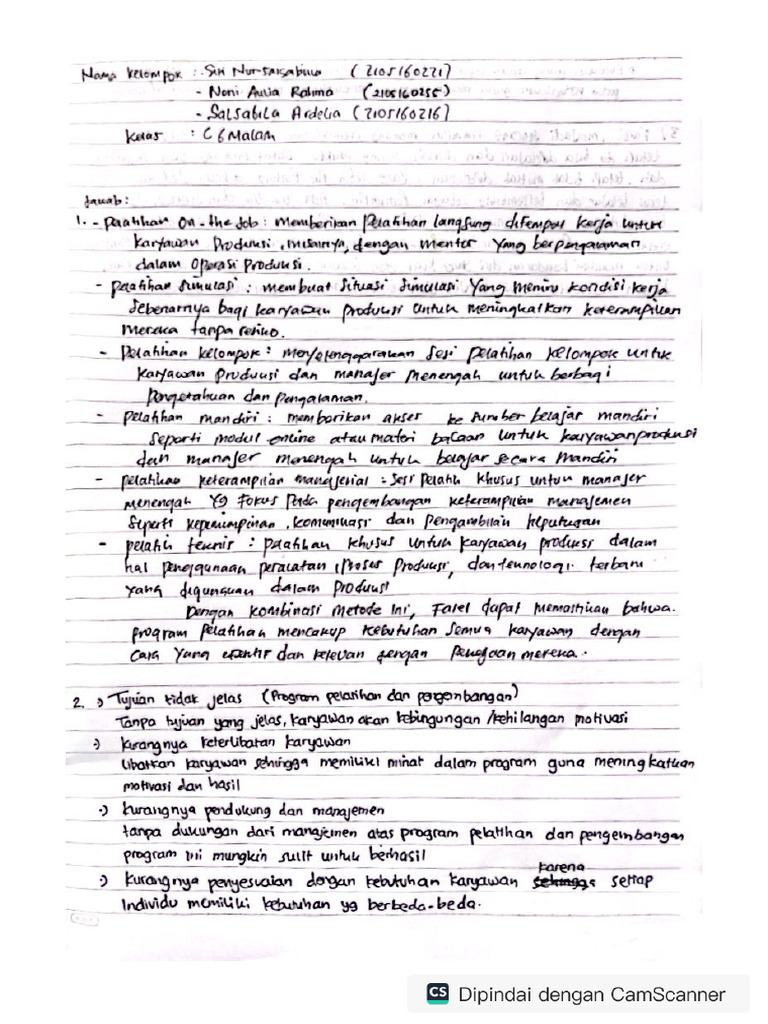 Nama kelompok : - Siti Nur-salsabilla (2105160271)
- Noni Aulia Rahma (2105160255)
- Salsabila Ardelia (2105160216)
Kelas : C6 Malam
Jawab:
1. - Pelatihan On-the Job : memberikan Pelatihan langsung ditempat kerja untuk
karyawan Produksi, misalnya, dengan mentor yang berpengalaman
dalam operasi Produksi.
- Pelatihan simulasi : membuat situasi simulasi yang meniru kondisi kerja
sebenarnya bagi karyawan produksi untuk meningkatkan keterampilan
mereka tanpa resiko.
- Pelatihan kelompok : menyelenggarakan sesi pelatihan kelompok untuk
karyawan Produksi dan manajer menengah untuk berbagi
Pengetahuan dan Pengalaman.
- pelatihan mandiri : memberikan akses ke sumber belajar mandiri
seperti modul online atau materi bacaan untuk karyawan produksi
dan manajer menengah untuk belajar secara mandiri
- pelatihan keterampilan manajerial : sesi Pelatih khusus untuk manajer
menengah Yg Fokus Pada pengembangan keterampilan manajemen
seperti kepemimpinan, komunikasi dan Pengambilan keputusan
- pelatih teknis : pelatihan khusus untuk karyawan produksi dalam
hal penggunaan peralatan, Proses Produksi, dan teknologi terbaru
yang digunakan dalam Produksi
Dengan kombinasi metode ini, Farel dapat memastikan bahwa
program Pelatihan mencakup kebutuhan semua karyawan dengan
cara yang efektif dan relevan dengan Pekerjaan mereka.
2. •) Tujuan tidak jelas (Program pelatihan dan pengembangan)
Tanpa tujuan yang jelas, karyawan akan kebingungan/kehilangan motivasi
•) kurangnya keterlibatan karyawan
libatkan karyawan sehingga memiliki minat dalam program guna meningkatkan
motivasi dan hasil
•) kurangnya pendukung dan manajemen
tanpa dukungan dari manajemen atas program pelatihan dan pengembangan
program ini mungkin sulit untuk berhasil
•) kurangnya penyesuaian dengan kebutuhan karyawan karena setiap
Individu memiliki kebutuhan yg berbeda-beda.
CS Dipindai dengan CamScanner